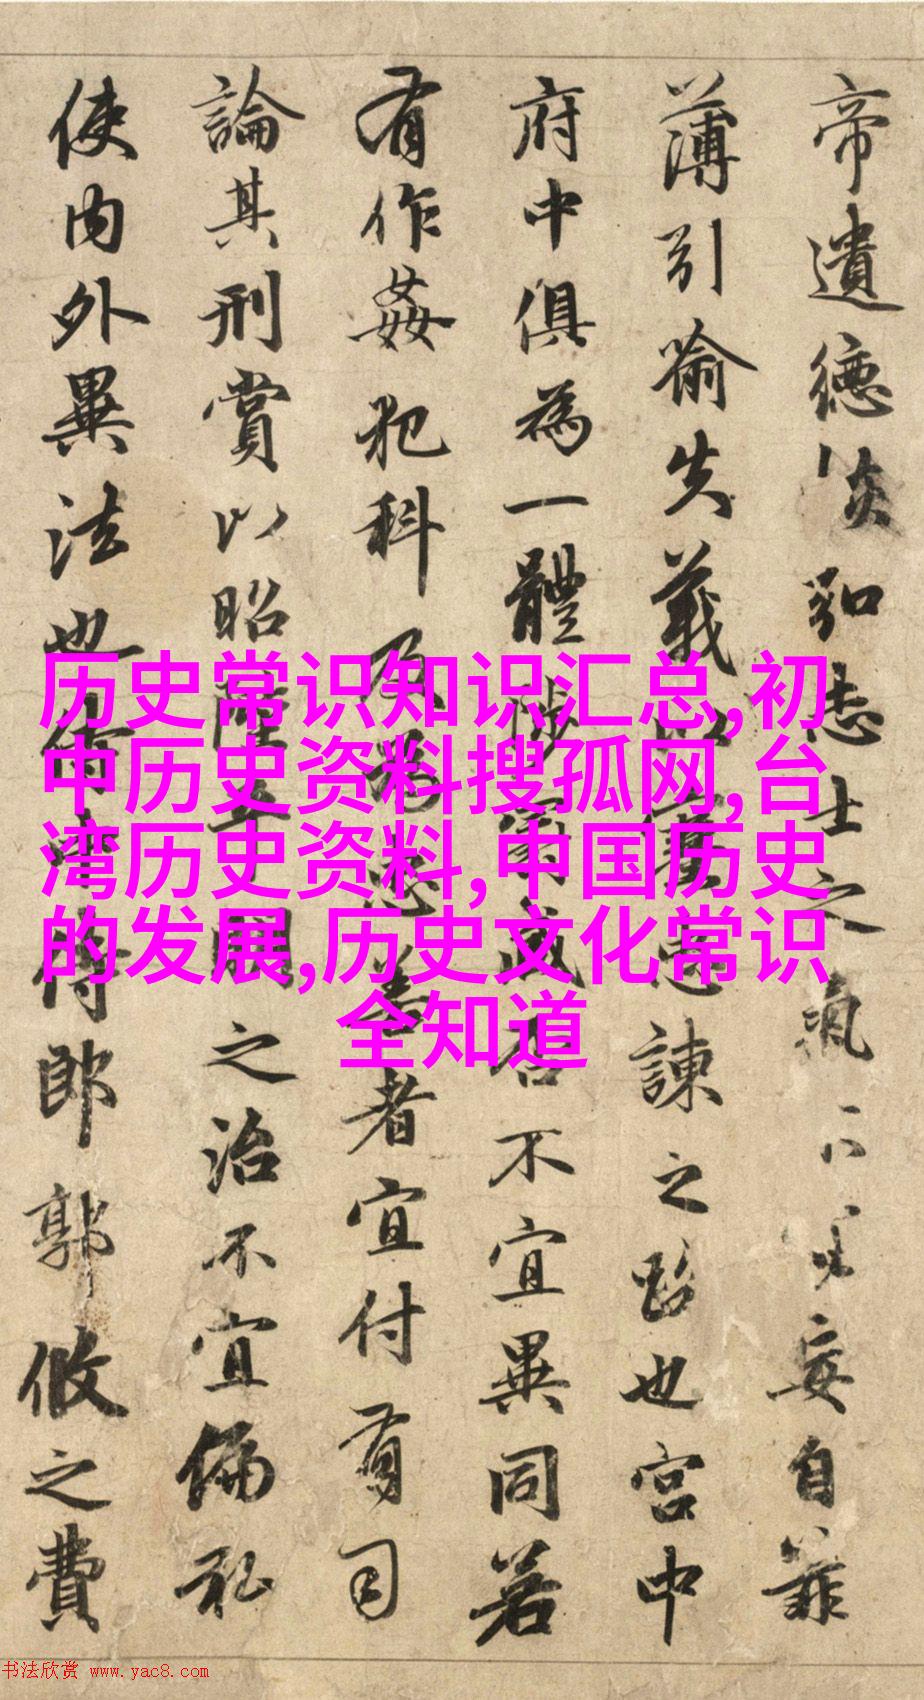 帝遺德恢弘志士之氣不妄自菲
薄引喻失義以塞忠諫之路也宮中
府中俱為一體陟罰臧否不宜異同若
有作姦犯科及為忠善者宜付有司
論其刑賞以昭陛平明之治不宜偏私
使內外異法也侍中侍郎郭攸之費
历史常识知识汇总,初
中历史资料搜孤网,台
湾历史资料,中国历史
的发展,历史文化常识
全知道
书法欣赏 www.yac8.com